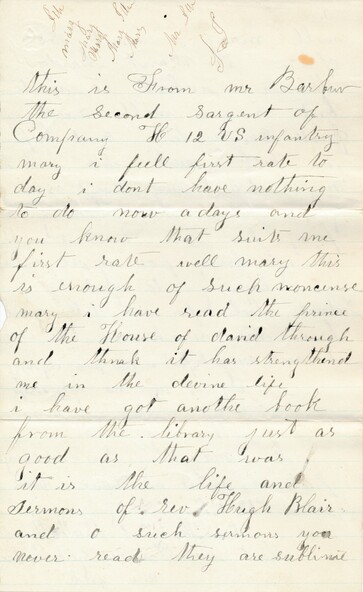 this is From mr Barbur
the second Sargent of
Company H 12 US infantry
mary i feell first rate to
day i dont have nothing
to do now a days and
you know that suits me
first rate well mary this
is enough of such noncense
mary i have read the prince
of the House of david through
and think it has strengthend
me in the devine life
i have got anothe book
from the library just as
good as that was
it is the life and
Sermons of rev Hugh Blair
and o such sermons you
never read they are sublime